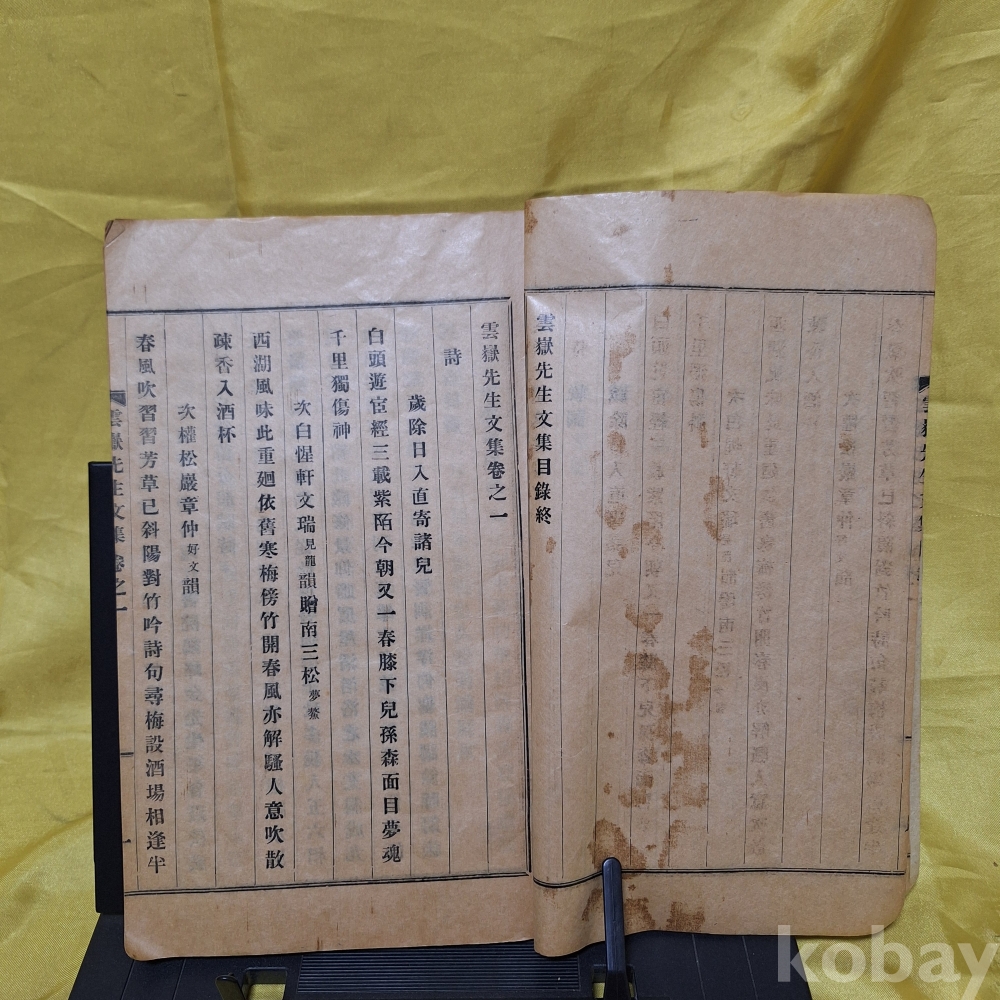 雲嶽先生文集目錄終
雲嶽先生文集卷之一
詩
歲除日入直寄諸兒
白頭遊宦經三載紫陌今朝又一春膝下兒孫森面目夢魂
千里獨傷神
次白惺軒文瑞見龍韻贈南三松夢鰲
西湖風味此重廻依舊寒梅傍竹開春風亦解騷人意吹散
疎香入酒杯
次權松巖章仲好文韻
春風吹習習芳草已斜陽對竹吟詩句尋梅設酒場相逢半
雲嶽先生文集卷之一
一
kobay